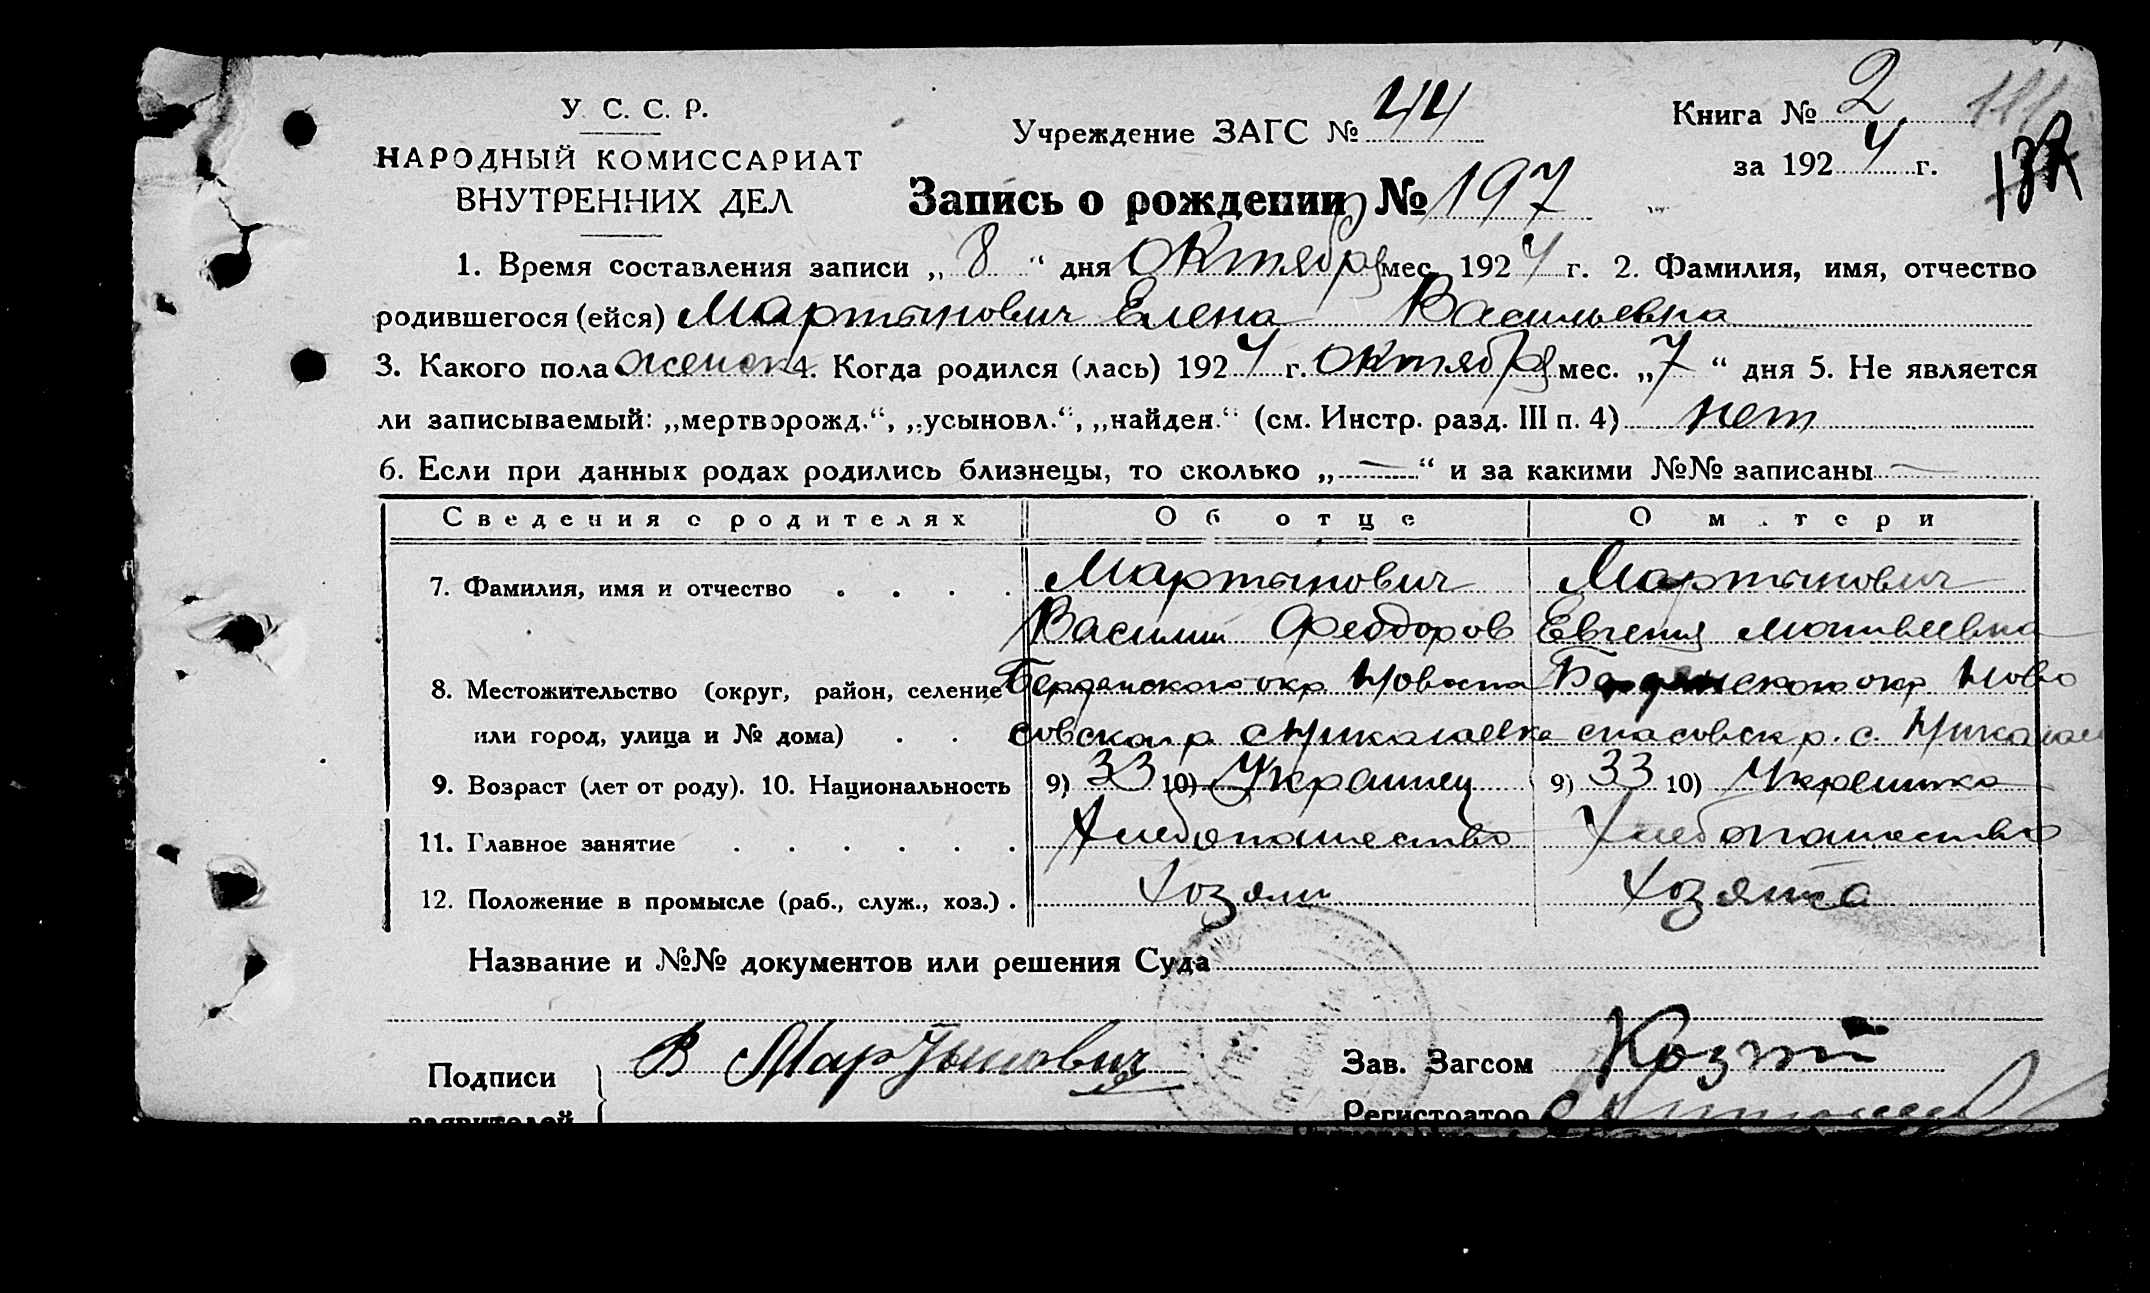 У. С. С. Р.
НАРОДНЫЙ КОМИССАРИАТ
ВНУТРЕННИХ ДЕЛ
Учреждение ЗАГС № 44
Книга № 2
за 1924 г.
132
Запись о рождении № 197
1. Время составления записи „ 8 “ дня Октября мес. 1924 г. 2. Фамилия, имя, отчество
родившегося (ейся) Мартынович Елена Васильевна
3. Какого пола женск 4. Когда родился (лась) 1924 г. Октября мес. „ 7 “ дня 5. Не является
ли записываемый: „мертворожд.“, „усыновл.“, „найден.“ (см. Инстр. разд. III п. 4) нет
6. Если при данных родах родились близнецы, то сколько „ — “ и за какими №№ записаны —
Сведения о родителях Об отце О матери
7. Фамилия, имя и отчество Мартынович Мартынович
Василий Феодоров Евгения Матвеевна
8. Местожительство (округ, район, селение Бердянского окр Новоспа Бердянского окр Ново
или город, улица и № дома) совского р с Николаевка спасовск р. с. Николаев
9. Возраст (лет от роду). 10. Национальность 9) 33 10) Украинец 9) 33 10) Украинка
11. Главное занятие Хлебопашество Хлебопашество
12. Положение в промысле (раб., служ., хоз.) Хозяин Хозяйка
Название и №№ документов или решения Суда
Подписи В Мартынович Зав. Загсом
заявителей Регистратор